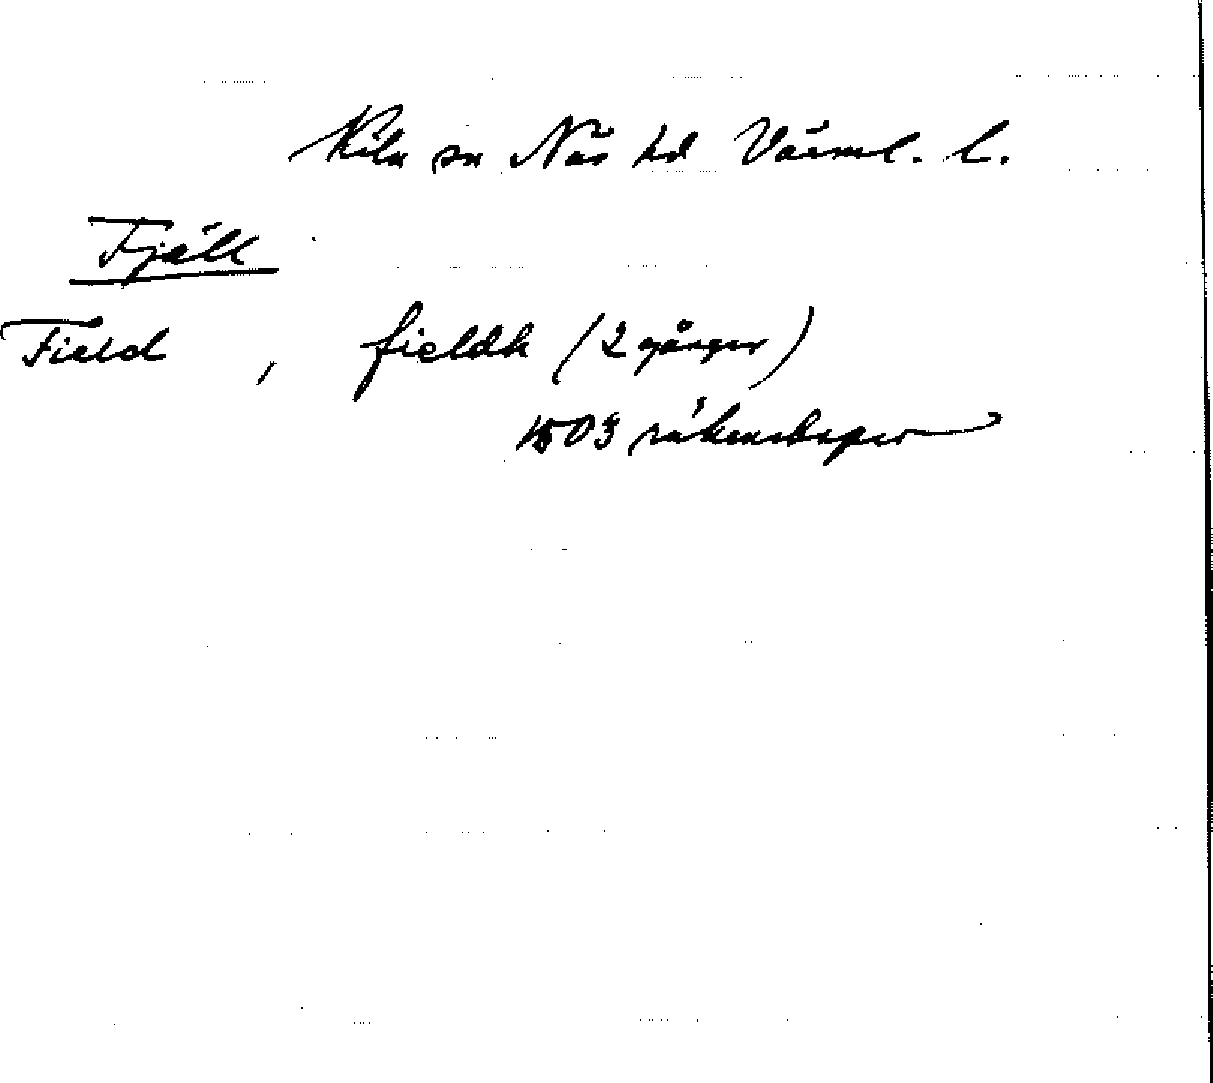 Kila sn Näs hd Värml. l.
Fjäll
Field, fieldh (2 gånger)
1503 räkenskaper